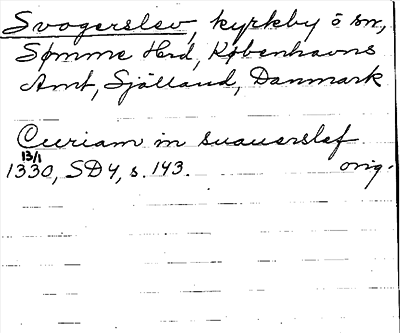 Svogerslev, kyrkby ö sn,
Sømme Hrd, Københavns
Amt, Sjölland, Danmark
Curiam in suauerslef
13/1
1330, SD4, s. 143. orig.